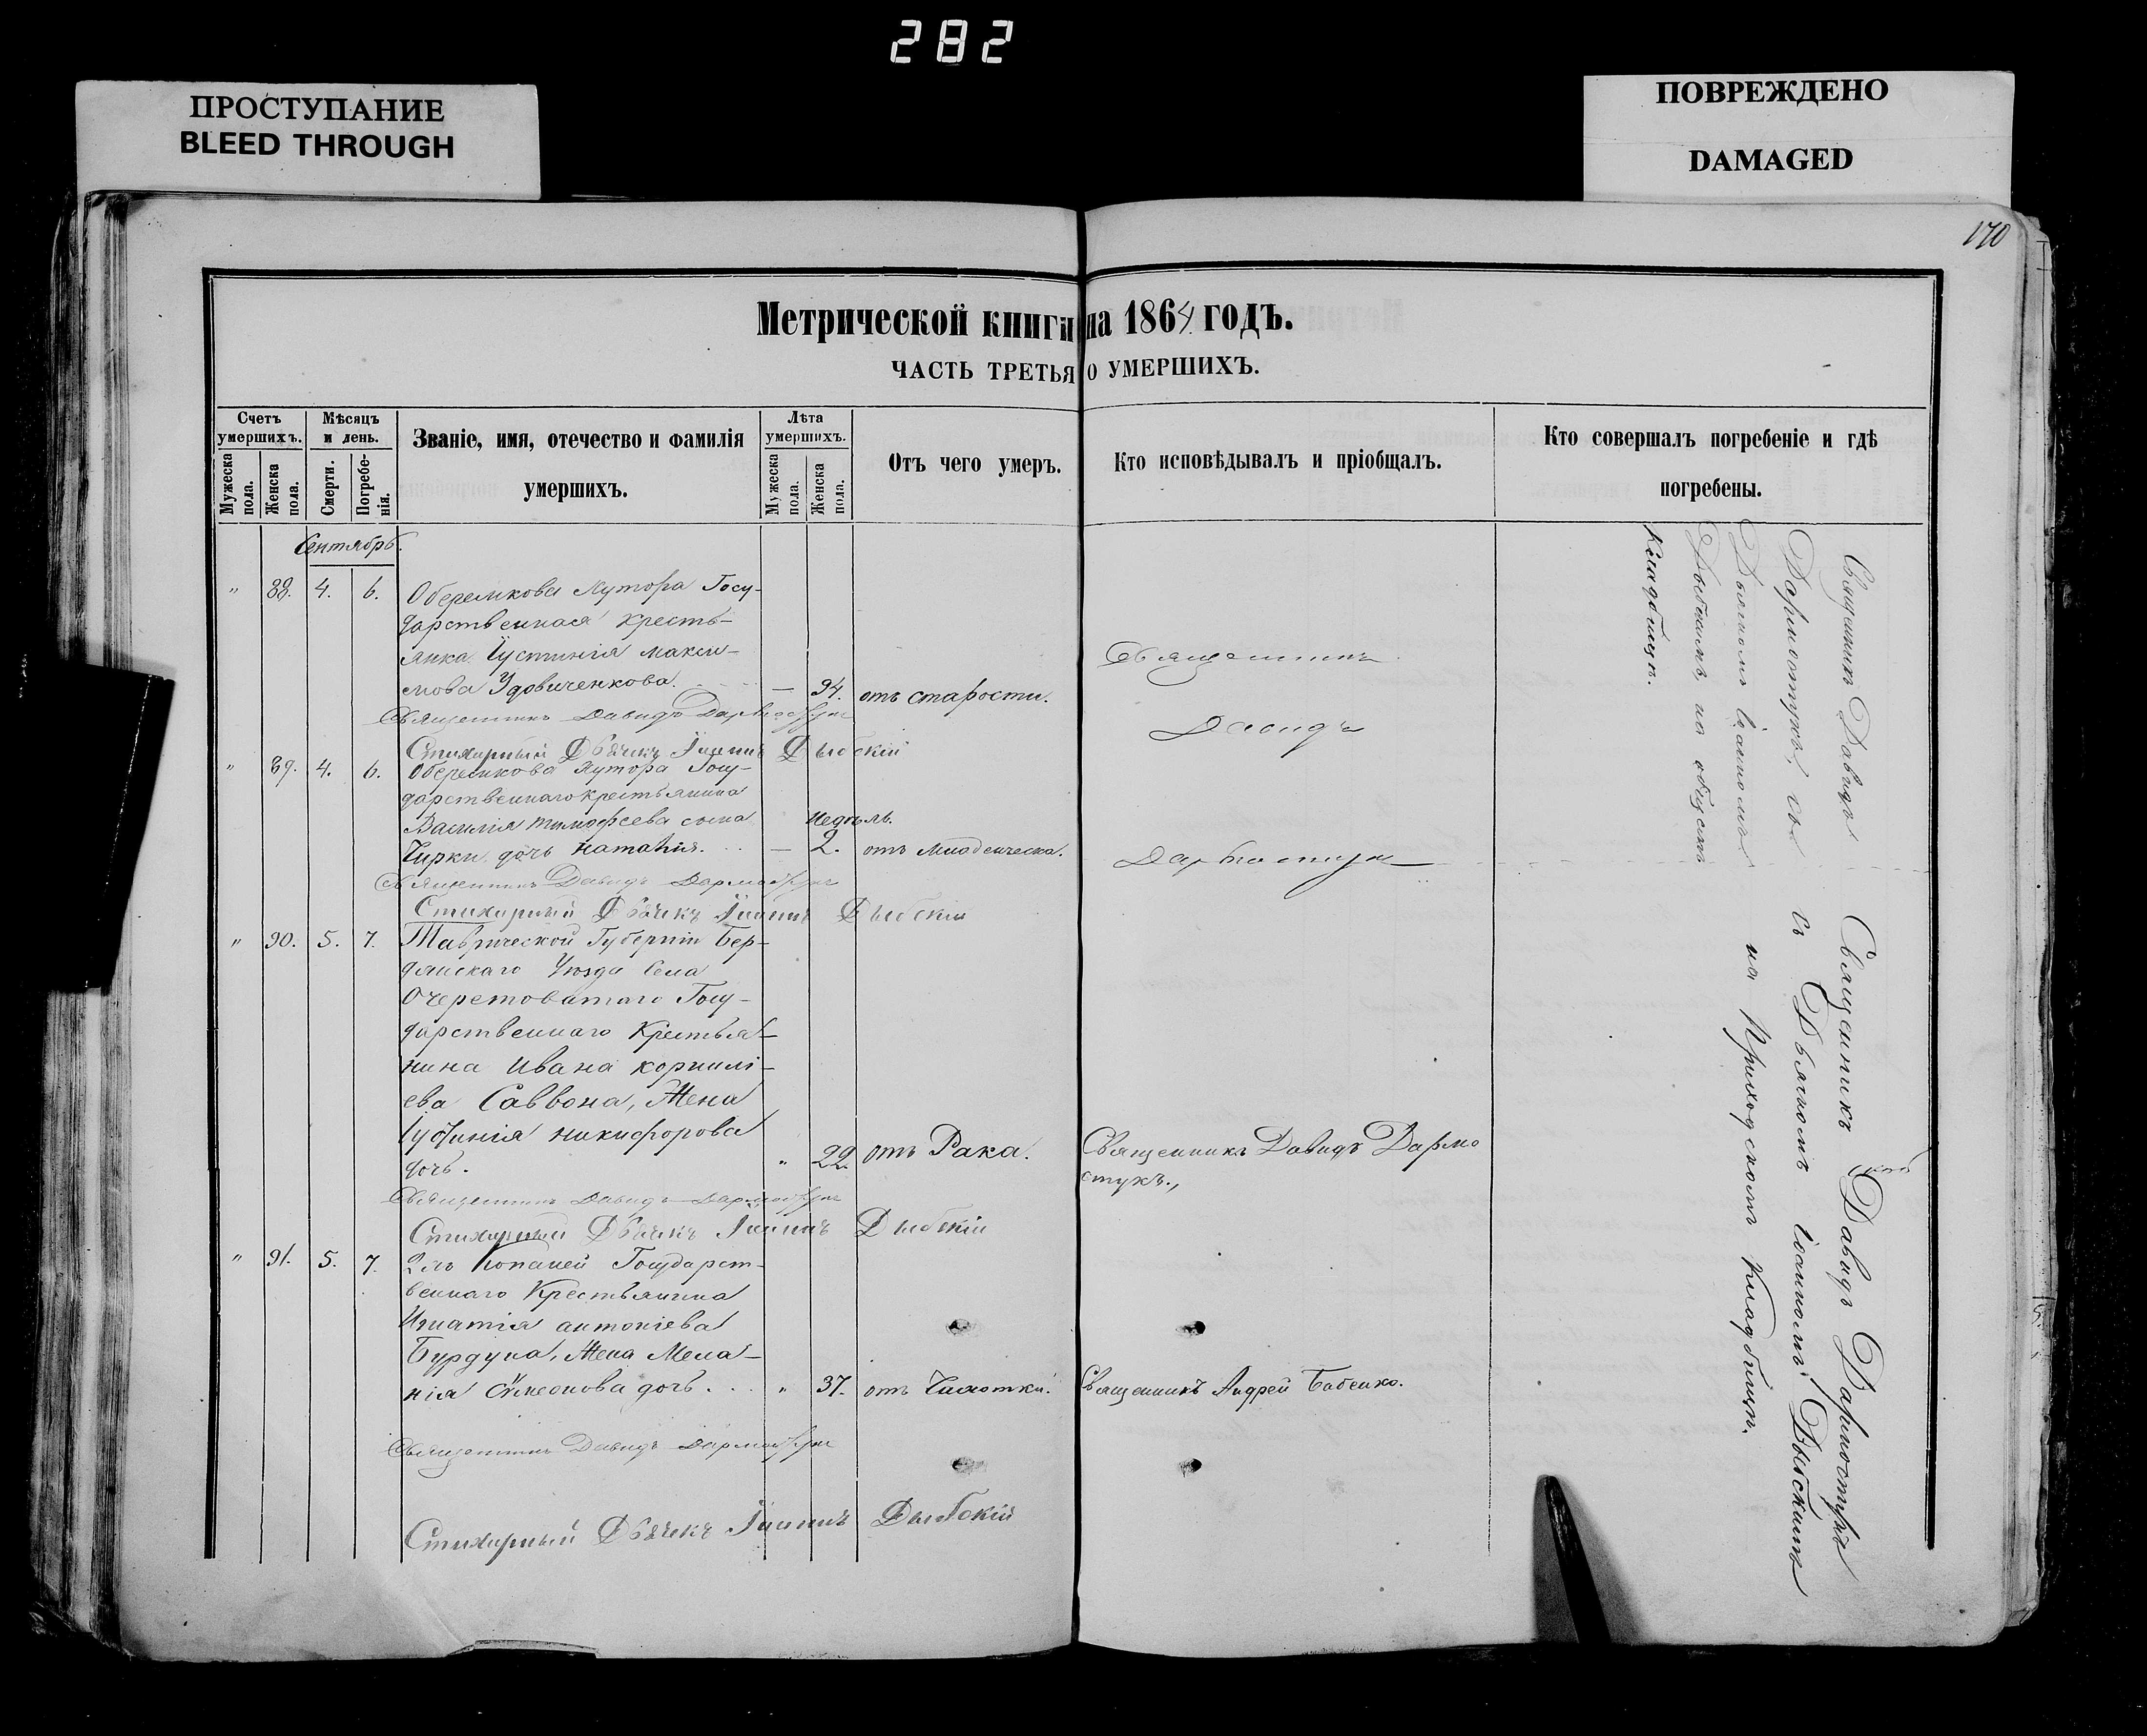 282
ПРОСТУПАНИЕ
BLEED THROUGH
ПОВРЕЖДЕНО
DAMAGED
170
Метрической книги на 1864 годъ.
ЧАСТЬ ТРЕТЬЯ О УМЕРШИХЪ.
Счетъ умершихъ.
Мужеска пола.
Женска пола.
Мѣсяцъ и день.
Смерти.
Погребенія.
Званіе, имя, отечество и фамилія умершихъ.
Лѣта умершихъ.
Мужеска пола.
Женска пола.
Отъ чего умеръ.
Кто исповѣдывалъ и пріобщалъ.
Кто совершалъ погребеніе и гдѣ погребены.
Сентябрь.
" 88. 4. 6. Оберемкова Хутора Госу-
дарственная кресть-
янка Іустинія макси-
мова Удовиченкова. — 94. отъ старости.
Священникъ Давидъ Дармостукъ
Стихарный Дьячекъ Іоаннъ Дыбскій
" 89. 4. 6. Оберемкова Хутора Госу-
дарственнаго крестьянина
Василія тимофеева сына недѣль.
Чирки дочь Наталія. — 2. отъ младенческа.
Священникъ Давидъ Дармостукъ
Стихарный Дьячекъ Іоаннъ Дыбскій
Священникъ
Давидъ
Дармостукъ
" 90. 5. 7. Таврической Губерніи Бер-
дянскаго Уѣзда Села
Очеретоватаго Госу-
дарственнаго Крестья-
нина Ивана корнилі-
ева Саввона, Жена
Іустинія никифорова
дочь. " 22. отъ Рака. Священникъ Давидъ Дармо
стукъ.,
Священникъ Давидъ Дармостукъ
Стихарный Дьячекъ Іоаннъ Дыбскій
" 91. 5. 7. Копаней Государст-
веннаго Крестьянина
Игнатія антоніева
Бурдуна, Жена Мела-
нія Сѵмеонова дочь. " 37. отъ Чахотки. Священникъ Андрей Бабенко.
Священникъ Давидъ Дармостукъ
Стихарный Дьячекъ Іоаннъ Дыбскій
Священникъ Давидъ
Дармостукъ, съ
Дьячкомъ Іоанномъ
Дыбскимъ, на общемъ
Кладбищѣ.
Священникъ Давидъ Дармостукъ
съ Дьячкомъ Іоанномъ Дыбскимъ
на Приходскомъ Кладбищѣ.